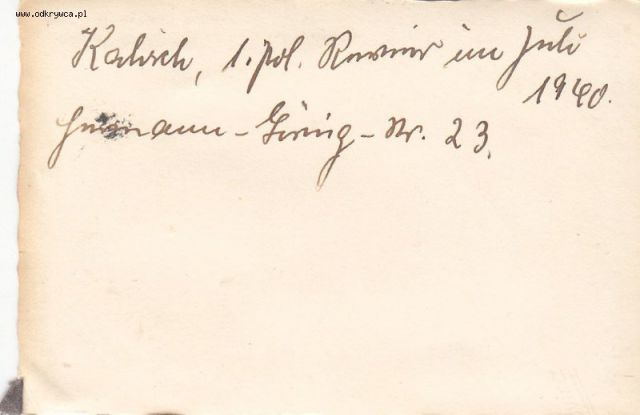 www.odkrywca.pl
Kalisch, 1. Pol. Revier im Juli
1940.
Hermann-Göring-Str. 23.